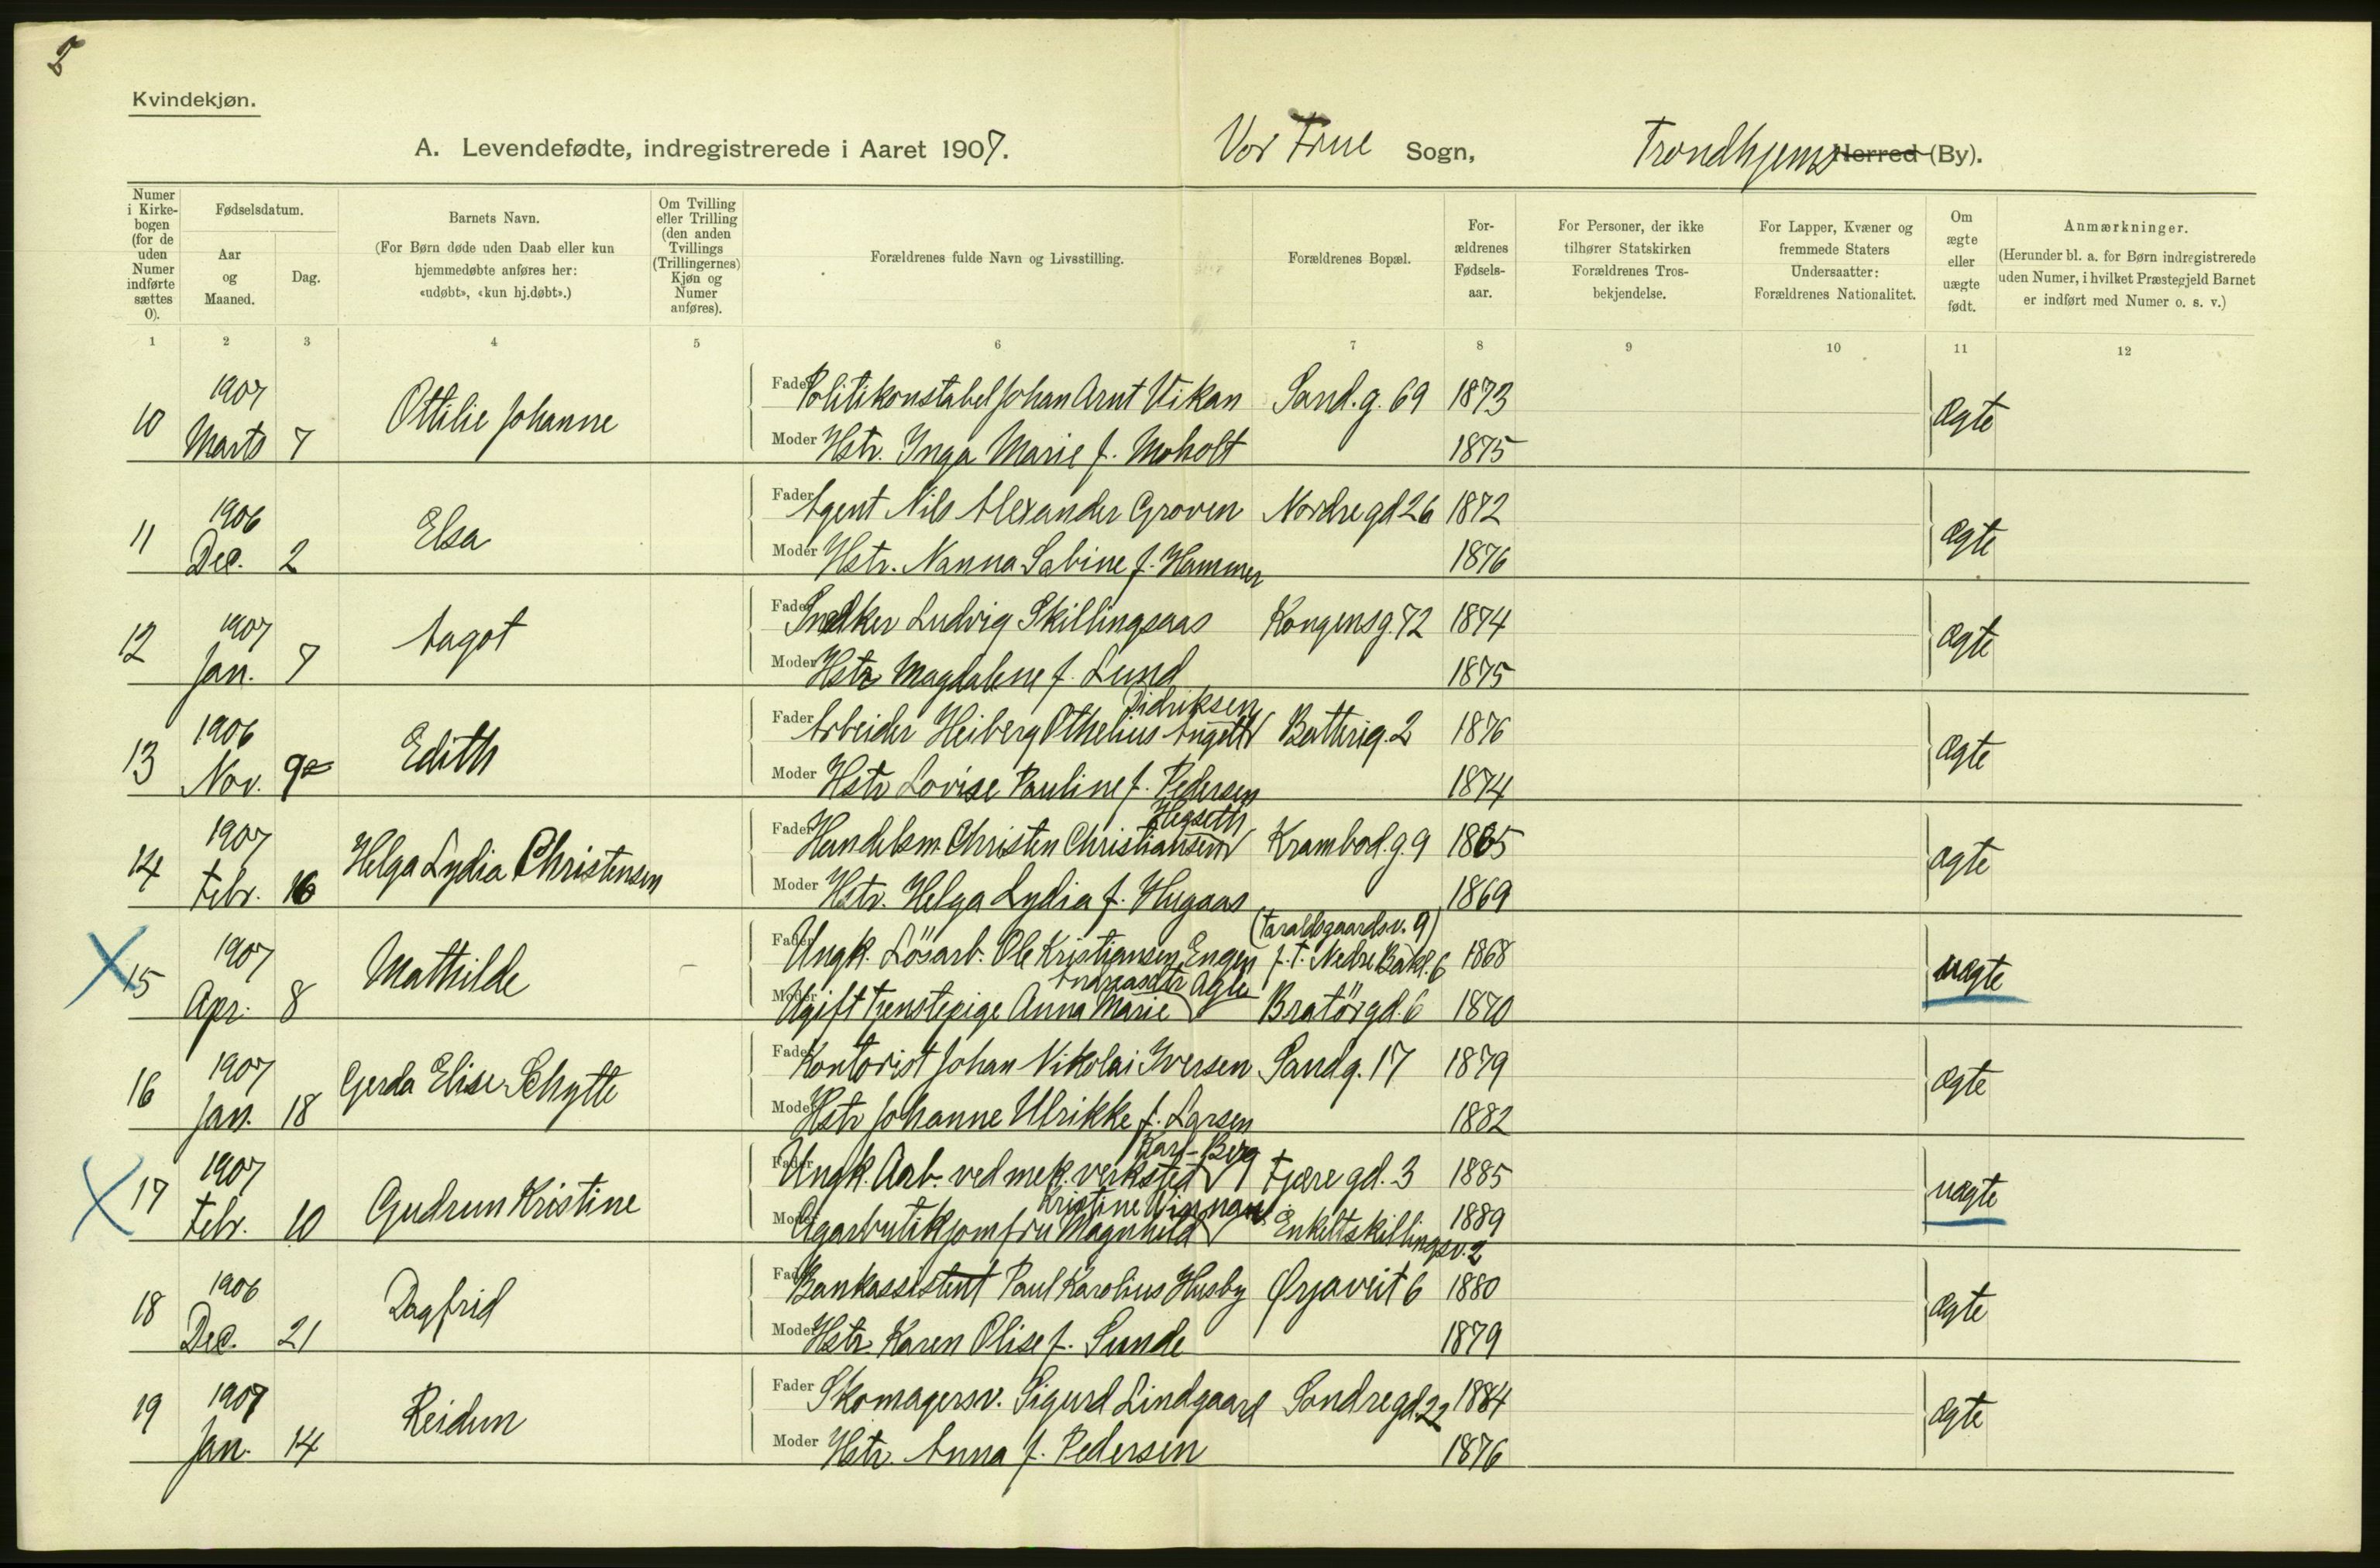 5
Kvindekjøn.
A. Levendefødte, indregistrerede i Aaret 1907. Vor Frue Sogn, Trondhjems Herred (By).
Numer i Kirkebogen (for de uden Numer indførte sættes 0).
Fødselsdatum.
Aar og Maaned.
Dag.
Barnets Navn.
(For Børn døde uden Daab eller kun hjemmedøbte anføres her: «udøbt», «kun hj.døbt».)
Om Tvilling eller Trilling (den anden Tvillings (Trillingernes) Kjøn og Numer anføres).
Forældrenes fulde Navn og Livsstilling.
Forældrenes Bopæl.
Forældrenes Fødselsaar.
For Personer, der ikke tilhører Statskirken Forældrenes Trosbekjendelse.
For Lapper, Kvæner og fremmede Staters Undersaatter: Forældrenes Nationalitet.
Om ægte eller uægte født.
Anmærkninger.
(Herunder bl. a. for Børn indregistrerede uden Numer, i hvilket Præstegjeld Barnet er indført med Numer o. s. v.)
1 2 3 4 5 6 7 8 9 10 11 12
10 1907 Marts 7 Ottilie Johanne
Fader Politikonstabel Johan Arnt Vikan Sand.g. 69 1873 Ægte
Moder Hstr. Inga Marie f. Moholt 1875
11 1906 Dec. 2 Elsa
Fader Agent Nils Alexander Groven Nordregd 26 1872 Ægte
Moder Hstr. Nanna Sabine f. Hammer 1876
12 1907 Jan. 7 Aagot
Fader Snedker Ludvig Skillingsaas Kongensg. 72 1874 Ægte
Moder Hstr Magdalene f. Lund 1875
13 1906 Nov. 9 Edith
Didriksen
Fader Arbeider Heiberg Othelius Batterig. 2 1876 Ægte
Moder Hstr Lovise Pauline f. Pedersen 1874
14 1907 Febr. 16 Helga Lydia Christensen
Hegseth
Fader Handelsm. Christen Christiansen Krambod.g. 9 1865 Ægte
Moder Hstr. Helga Lydia f. Hugaas 1869
15 1907 Apr. 8 Mathilde
(Taraldsgaardsv. 9)
Fader Ungk. Lösarb. Ole Kristiansen Engen f. t. Nedre Bakl. 6 1868 uægte
Andreasdtr Agle
Moder Ugift Tjenstepige Anna Marie Bratörgd. 6 1870
16 1907 Jan. 18 Gerda Elise Schytte
Fader Kontorist Johan Nikolai Iversen Sandg. 17 1879 Ægte
Moder Hstr Johanne Ulrikke f. Larsen 1882
17 1907 Febr. 10 Gudrun Kristine
Karl Berg
Fader Ungk. Arb. ved mek. verksted Fjæregd. 3 1885 uægte
Kristine Winnan
Moder Cigarbutikjomfru Magnhild Enkeltskillingsv. 2 1889
18 1906 Dec. 21 Dagfrid
Fader Bankassistent Paul Karolius Husby Ørjaveit 6 1880 Ægte
Moder Hstr. Karen Olise f. Sunde 1879
19 1907 Jan. 14 Reidun
Fader Skomagersv. Sigurd Lindgaard Sondregd. 22 1884 Ægte
Moder Hstr. Anna f. Pedersen 1876